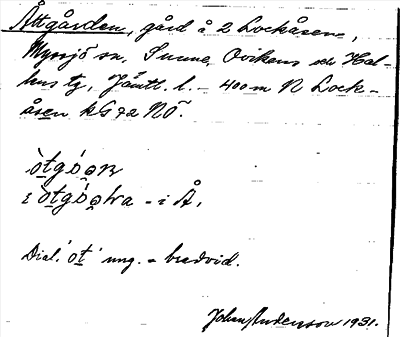 Åttgården, gård å 2 Lockåsen,
Myssjö sn, Sunne, Ovikens och Hal-
lens tg, Jämtl. l. – 400 m N Lock-
åsen kG 72 NÖ.
òtgó̯ǝn
i òtgó̯ǝṇa – i Å.
Dial. 'ot' ung. = bredvid.
Johan Anderson 1931.